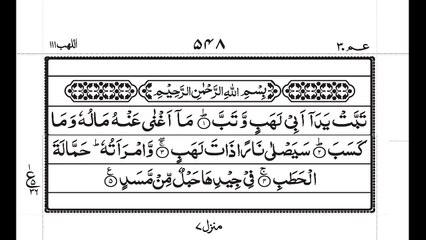 عم ۳۰ ۵۴۸ اللهب ۱۱۱
بِسْمِ اللهِ الرَّحْمٰنِ الرَّحِيْمِ
تَبَّتْ يَدَآ اَبِيْ لَهَبٍ وَّتَبَّ ۝۱ مَآ اَغْنٰى عَنْهُ مَالُهٗ وَمَا
كَسَبَ ۝۲ سَيَصْلٰى نَارًا ذَاتَ لَهَبٍ ۝۳ وَّامْرَاَتُهٗ ؕ حَمَّالَةَ
الْحَطَبِ ۝۴ فِيْ جِيْدِهَا حَبْلٌ مِّنْ مَّسَدٍ ۝۵
منزل ۷